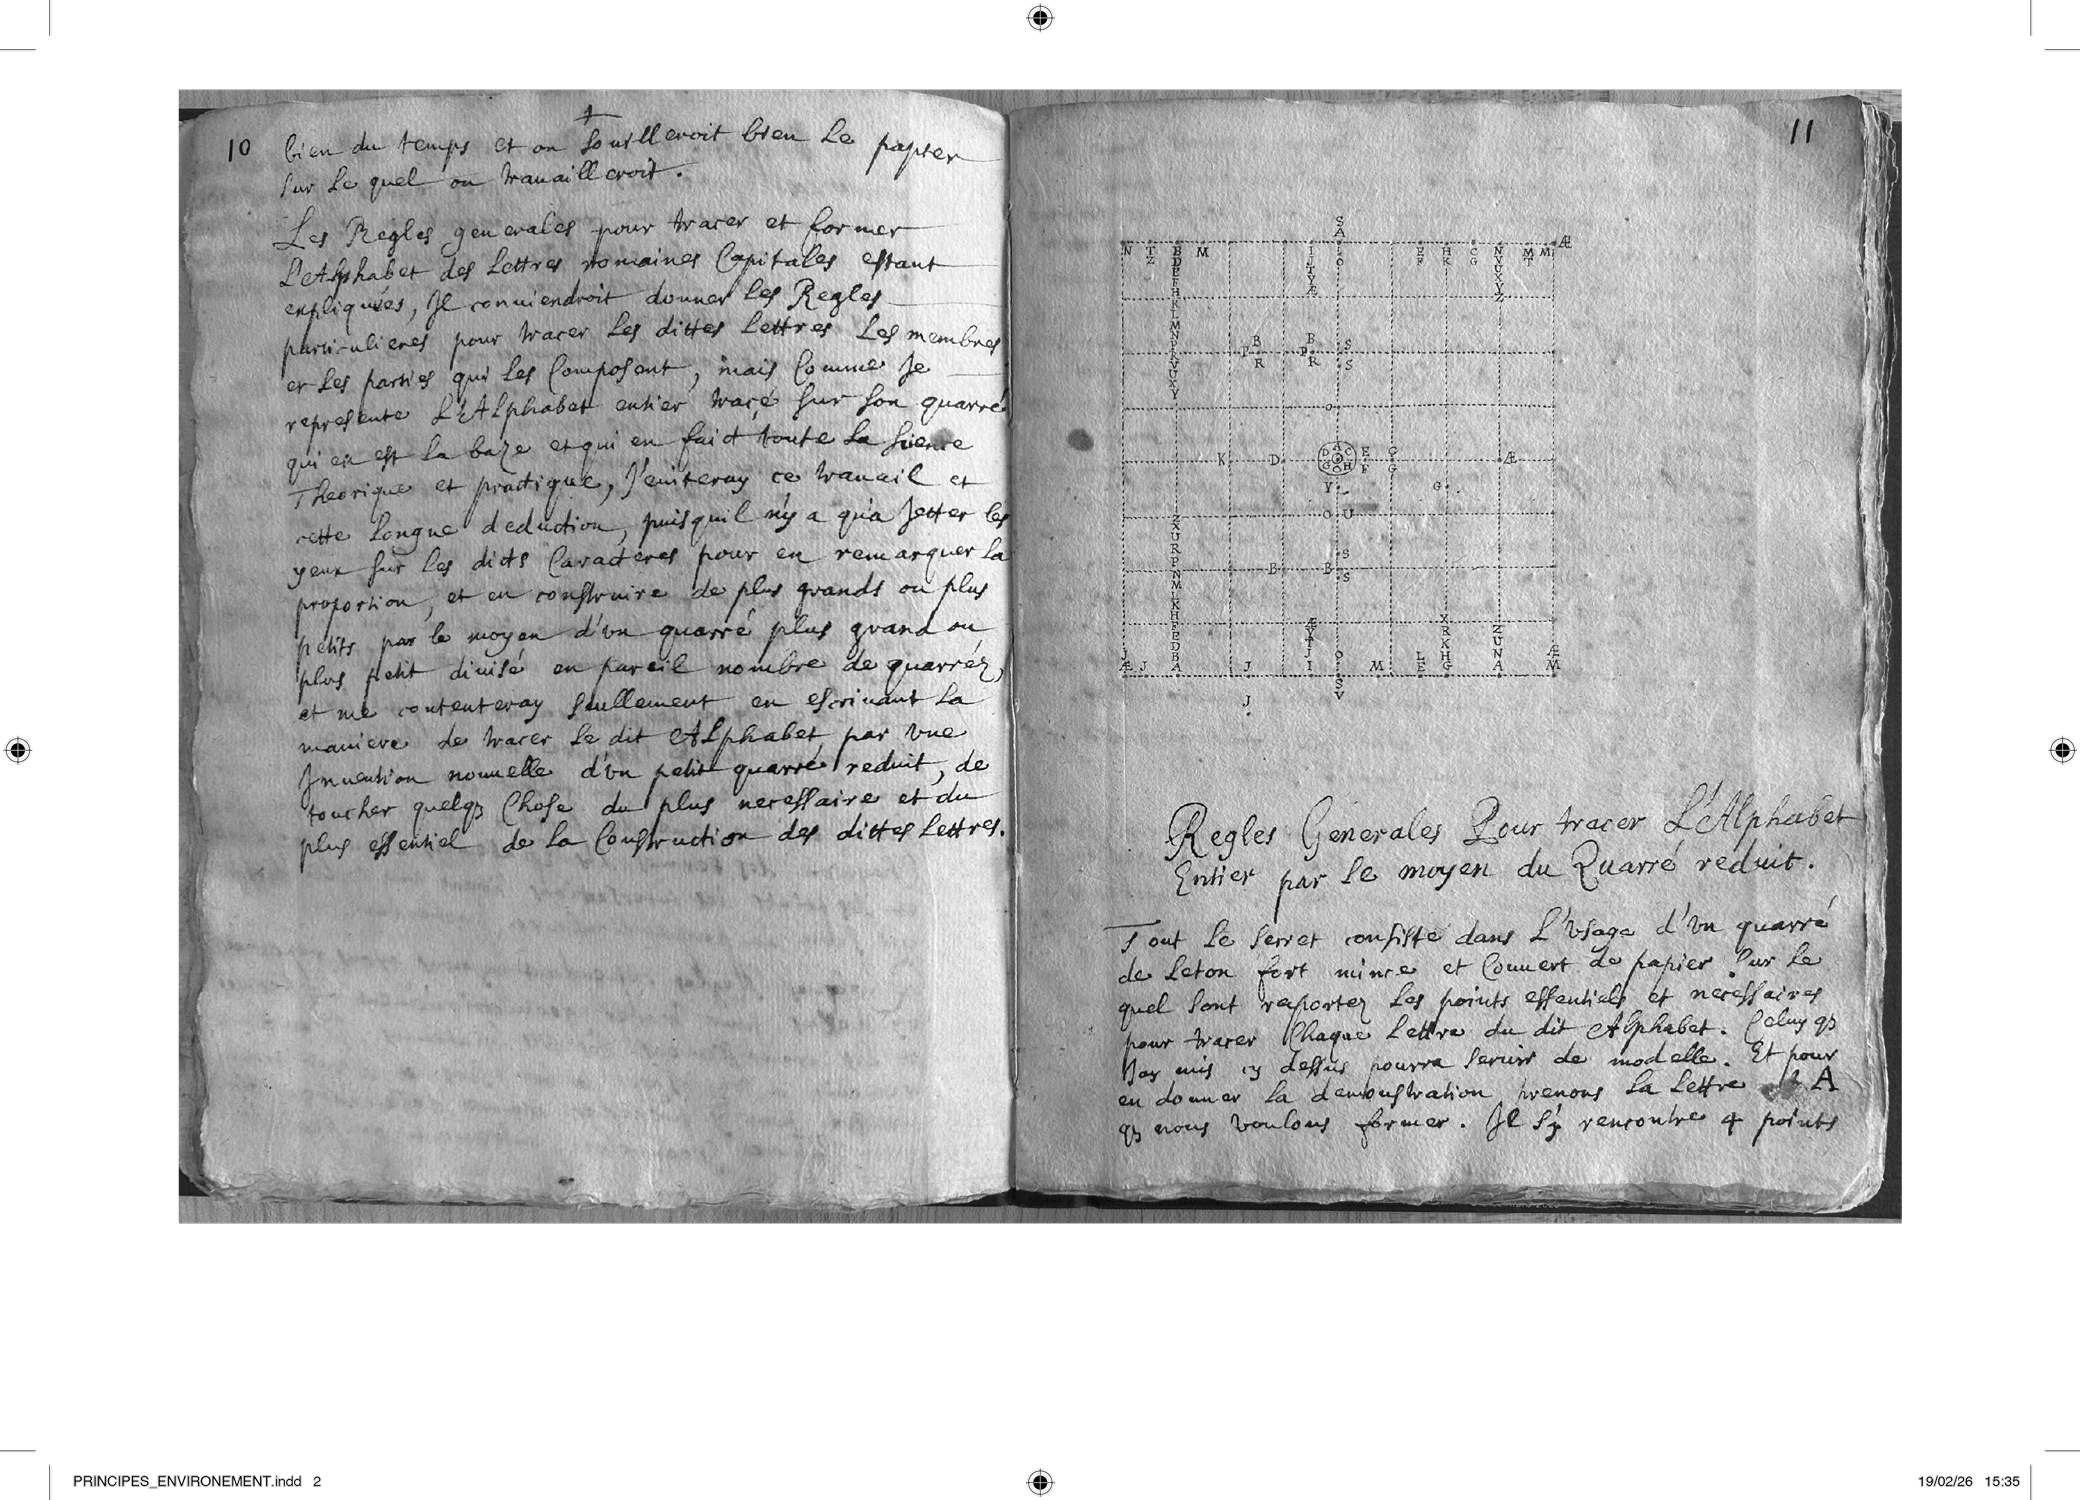 10
bien du temps et on souilleroit bien le papier
sur le quel on trauailleroit.
Les Regles generales pour tracer et former
L'Alphabet des Lettres romaines Capitales estant
expliquées, Jl conuiendroit donner les Regles
particulieres pour tracer les dittes lettres Les membres
et les parties qui les Composent, mais Comme Je
represente L'Alphabet entier tracé sur son quarré
qui en est la baze et qui en faict toute la sience
Theorique et practique, J'euiteray ce trauail et
cette longue deduction, puisquil n'y a qu'a Jetter les
yeux sur les dicts Caracteres pour en remarquer la
proportion, et en construire de plus grands ou plus
petits par le moyen d'vn quarré plus grand ou
plus petit diuisé en pareil nombre de quarréz,
et me contenteray seullement en escriuant la
maniere de tracer le dit Alphabet par vne
Jnuention nouuelle d'vn petit quarré reduit, de
toucher quelq3 Chose du plus necessaire et du
plus essentiel de la Construction des dittes lettres.
11
S
A
Æ
N T B M I L E H C N M M
Z D J O F K G V T
P T U
F V X
H Æ Y
K Z
L
M
N
P
R
V
U
X
Y
B B S
P P
R R S
O
K D D A C E C Æ
G O H F G
Y G
O U
Z
X
U
R
P
N
M
L
K
H
F
E
D
B
A
S
B B S
Æ X Z
Y R U
T K N
J J O L H Æ
Æ J J I M E G A M
S
V
J
Regles Generales Pour tracer L'Alphabet
Entier par le moyen du Quarré reduit.
Tout le secret consiste dans L'Vsage d'vn quarré
de leton fort mince et Couuert de papier sur le
quel sont raportez les points essentiels et necessaires
pour tracer Chaque lettre du dit Alphabet. Celuy q3
Jay mis cy dessus pourra seruir de modelle. Et pour
en donner la demonstration prenons la lettre A
q3 nous voulons former. Jl s'y rencontre 4 points
PRINCIPES_ENVIRONEMENT.indd 2
19/02/26 15:35